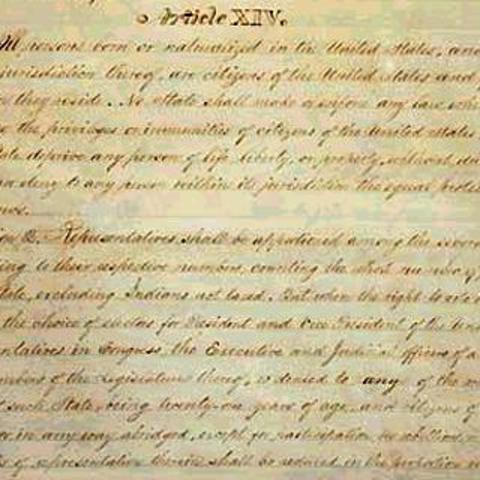 Article XIV.
All persons born or naturalized in the United States, and
jurisdiction thereof, are citizens of the United States and
n they reside. No State shall make or enforce any law whi
e the privileges or immunities of citizens of the United States
tate deprive any person of life, liberty, or property, without du
nor deny to any person within its jurisdiction the equal protec
aws.
ion 2. Representatives shall be apportioned among the severa
ing to their respective numbers, counting the whole number of
tate, excluding Indians not taxed. But when the right to vote
the choice of electors for President and Vice President of the Uni
ntatives in Congress, the Executive and Judicial officers of a
mbers of the Legislature thereof, is denied to any of the m
f such State, being twenty-one years of age, and citizens of
or in any way abridged, except for participation in rebellion,
s of representation therein shall be reduced in the proportion w